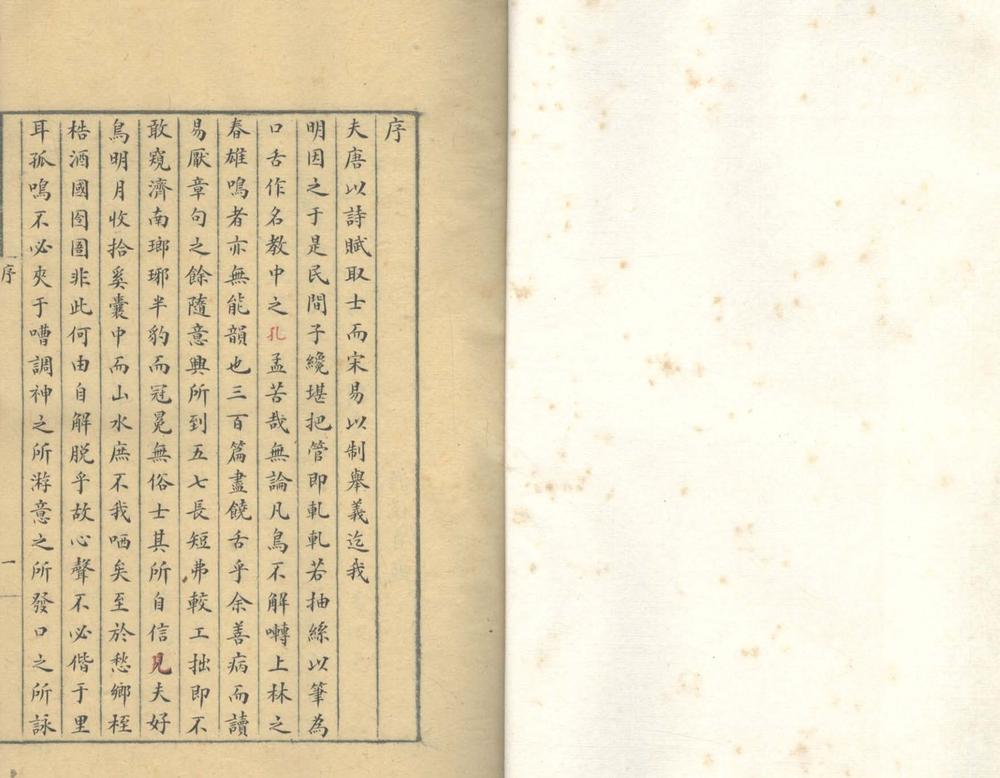 序
夫唐以詩賦取士而宋易以制舉義迄我
明因之于是民間子纔堪把管即軋軋若抽絲以筆為
口舌作名教中之孔孟苦哉無論凡鳥不解囀上林之
春雄鳴者亦無能韻也三百篇盡饒舌乎余善病而讀
易厭章句之餘隨意興所到五七長短弗較工拙即不
敢窺濟南瑯琊半豹而冠冕無俗士其所自信見夫好
鳥明月收拾奚囊中而山水庶不我哂矣至於愁鄉桎
梏酒國囹圄非此何由自解脫乎故心聲不必偕于里
耳孤鳴不必夾于嘈調神之所游意之所發口之所詠
序
一